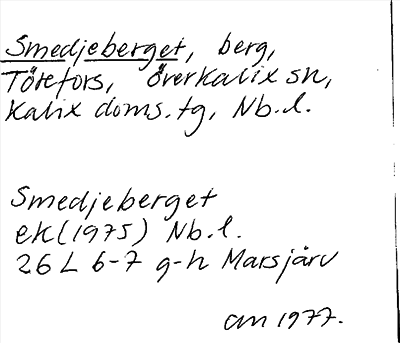 Smedjeberget, berg,
Törefors, Överkalix sn,
Kalix doms. tg, Nb.l.
Smedjeberget
ek (1975) Nb.l.
26 L 6-7 g-h Marsjärv
am 1977.